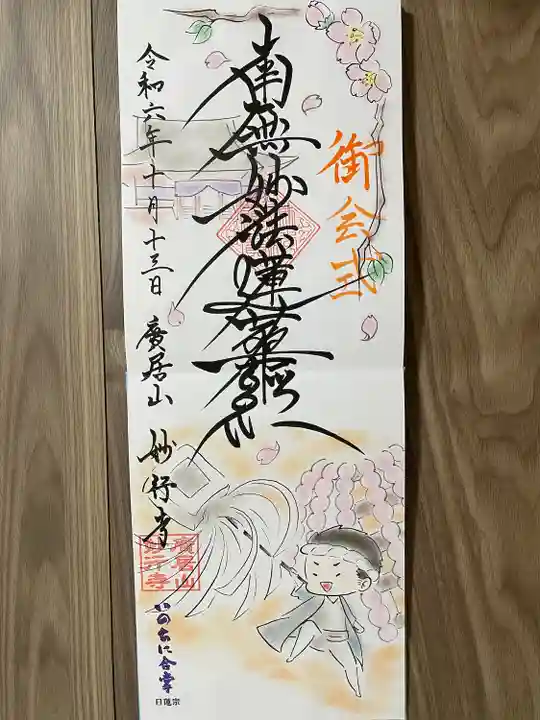 御会式
南無妙法蓮華経
令和六年十月十三日 廣居山 妙行寺
廣居山
妙行寺
いのちに合掌
日蓮宗